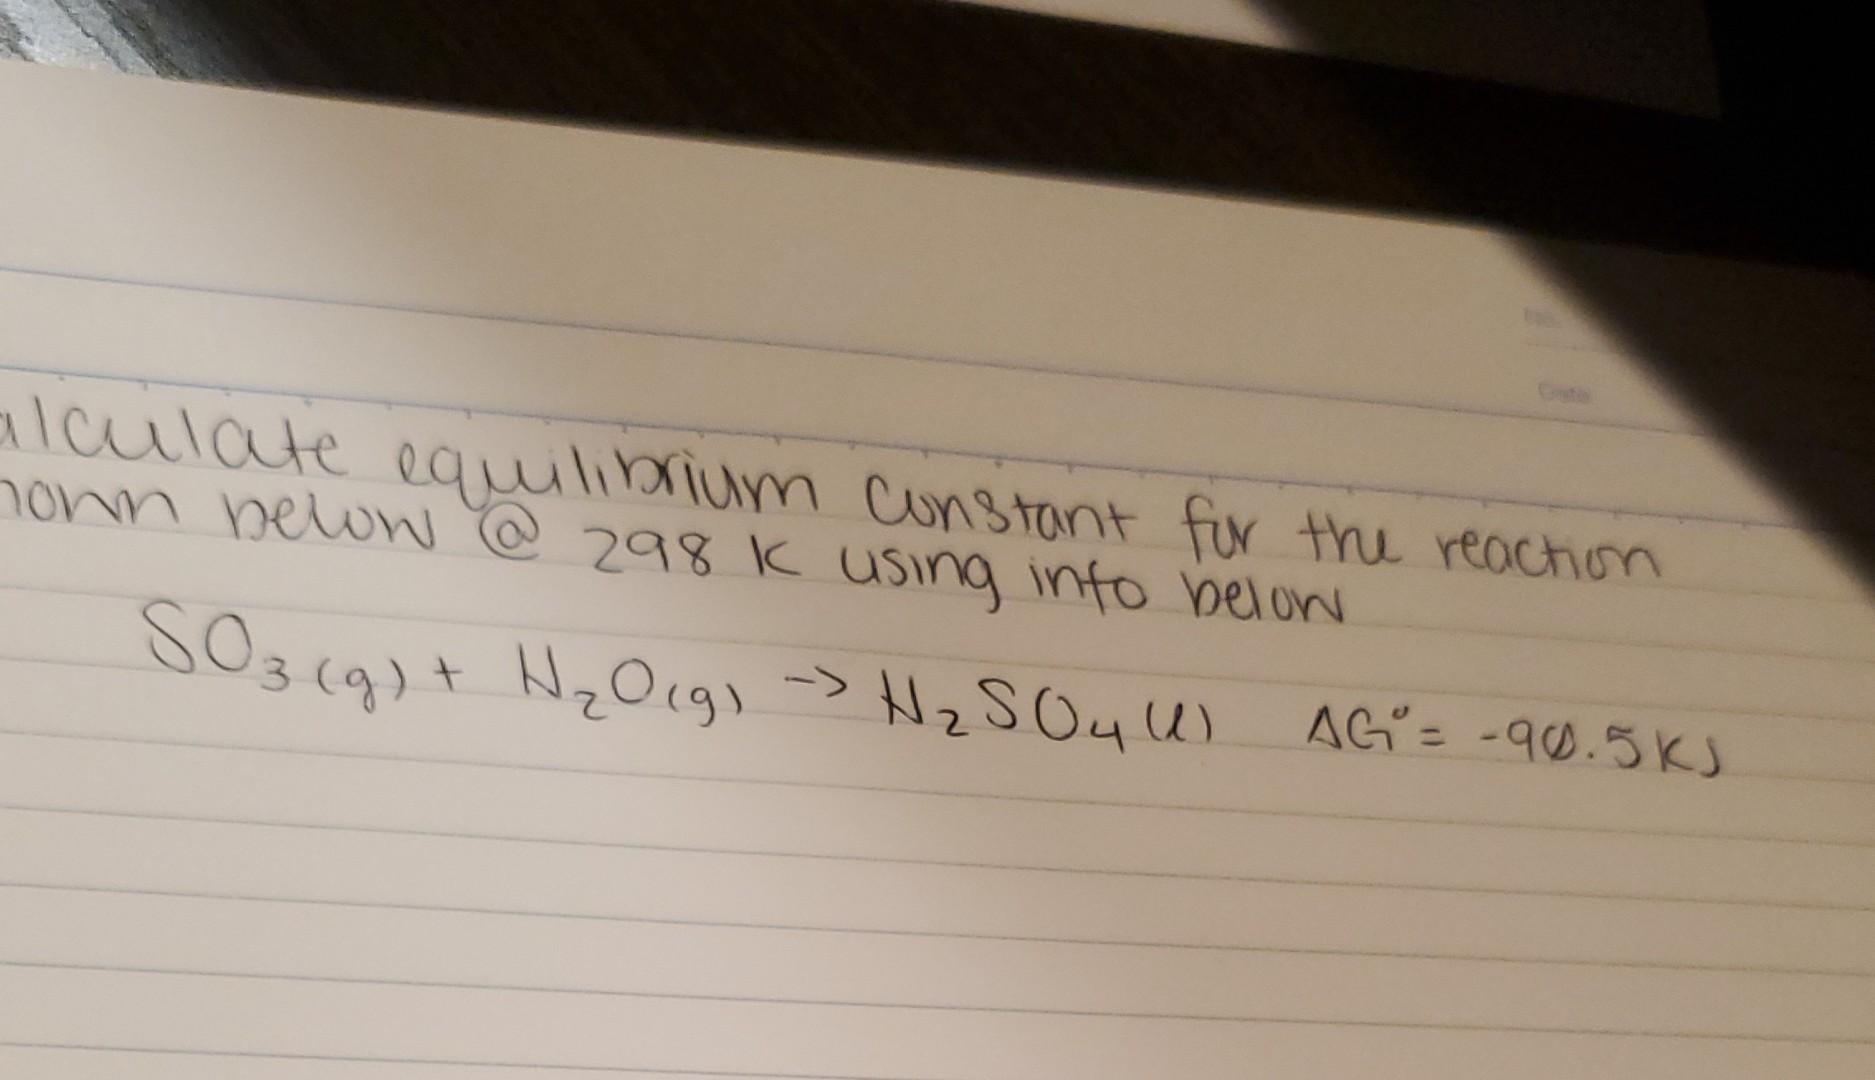 alculate equilibrium constant for the reaction
hown below @ 298 K using info below
SO₃(g) + H₂O(g) -> H₂SO₄(l) ΔG° = -90.5KJ
Date